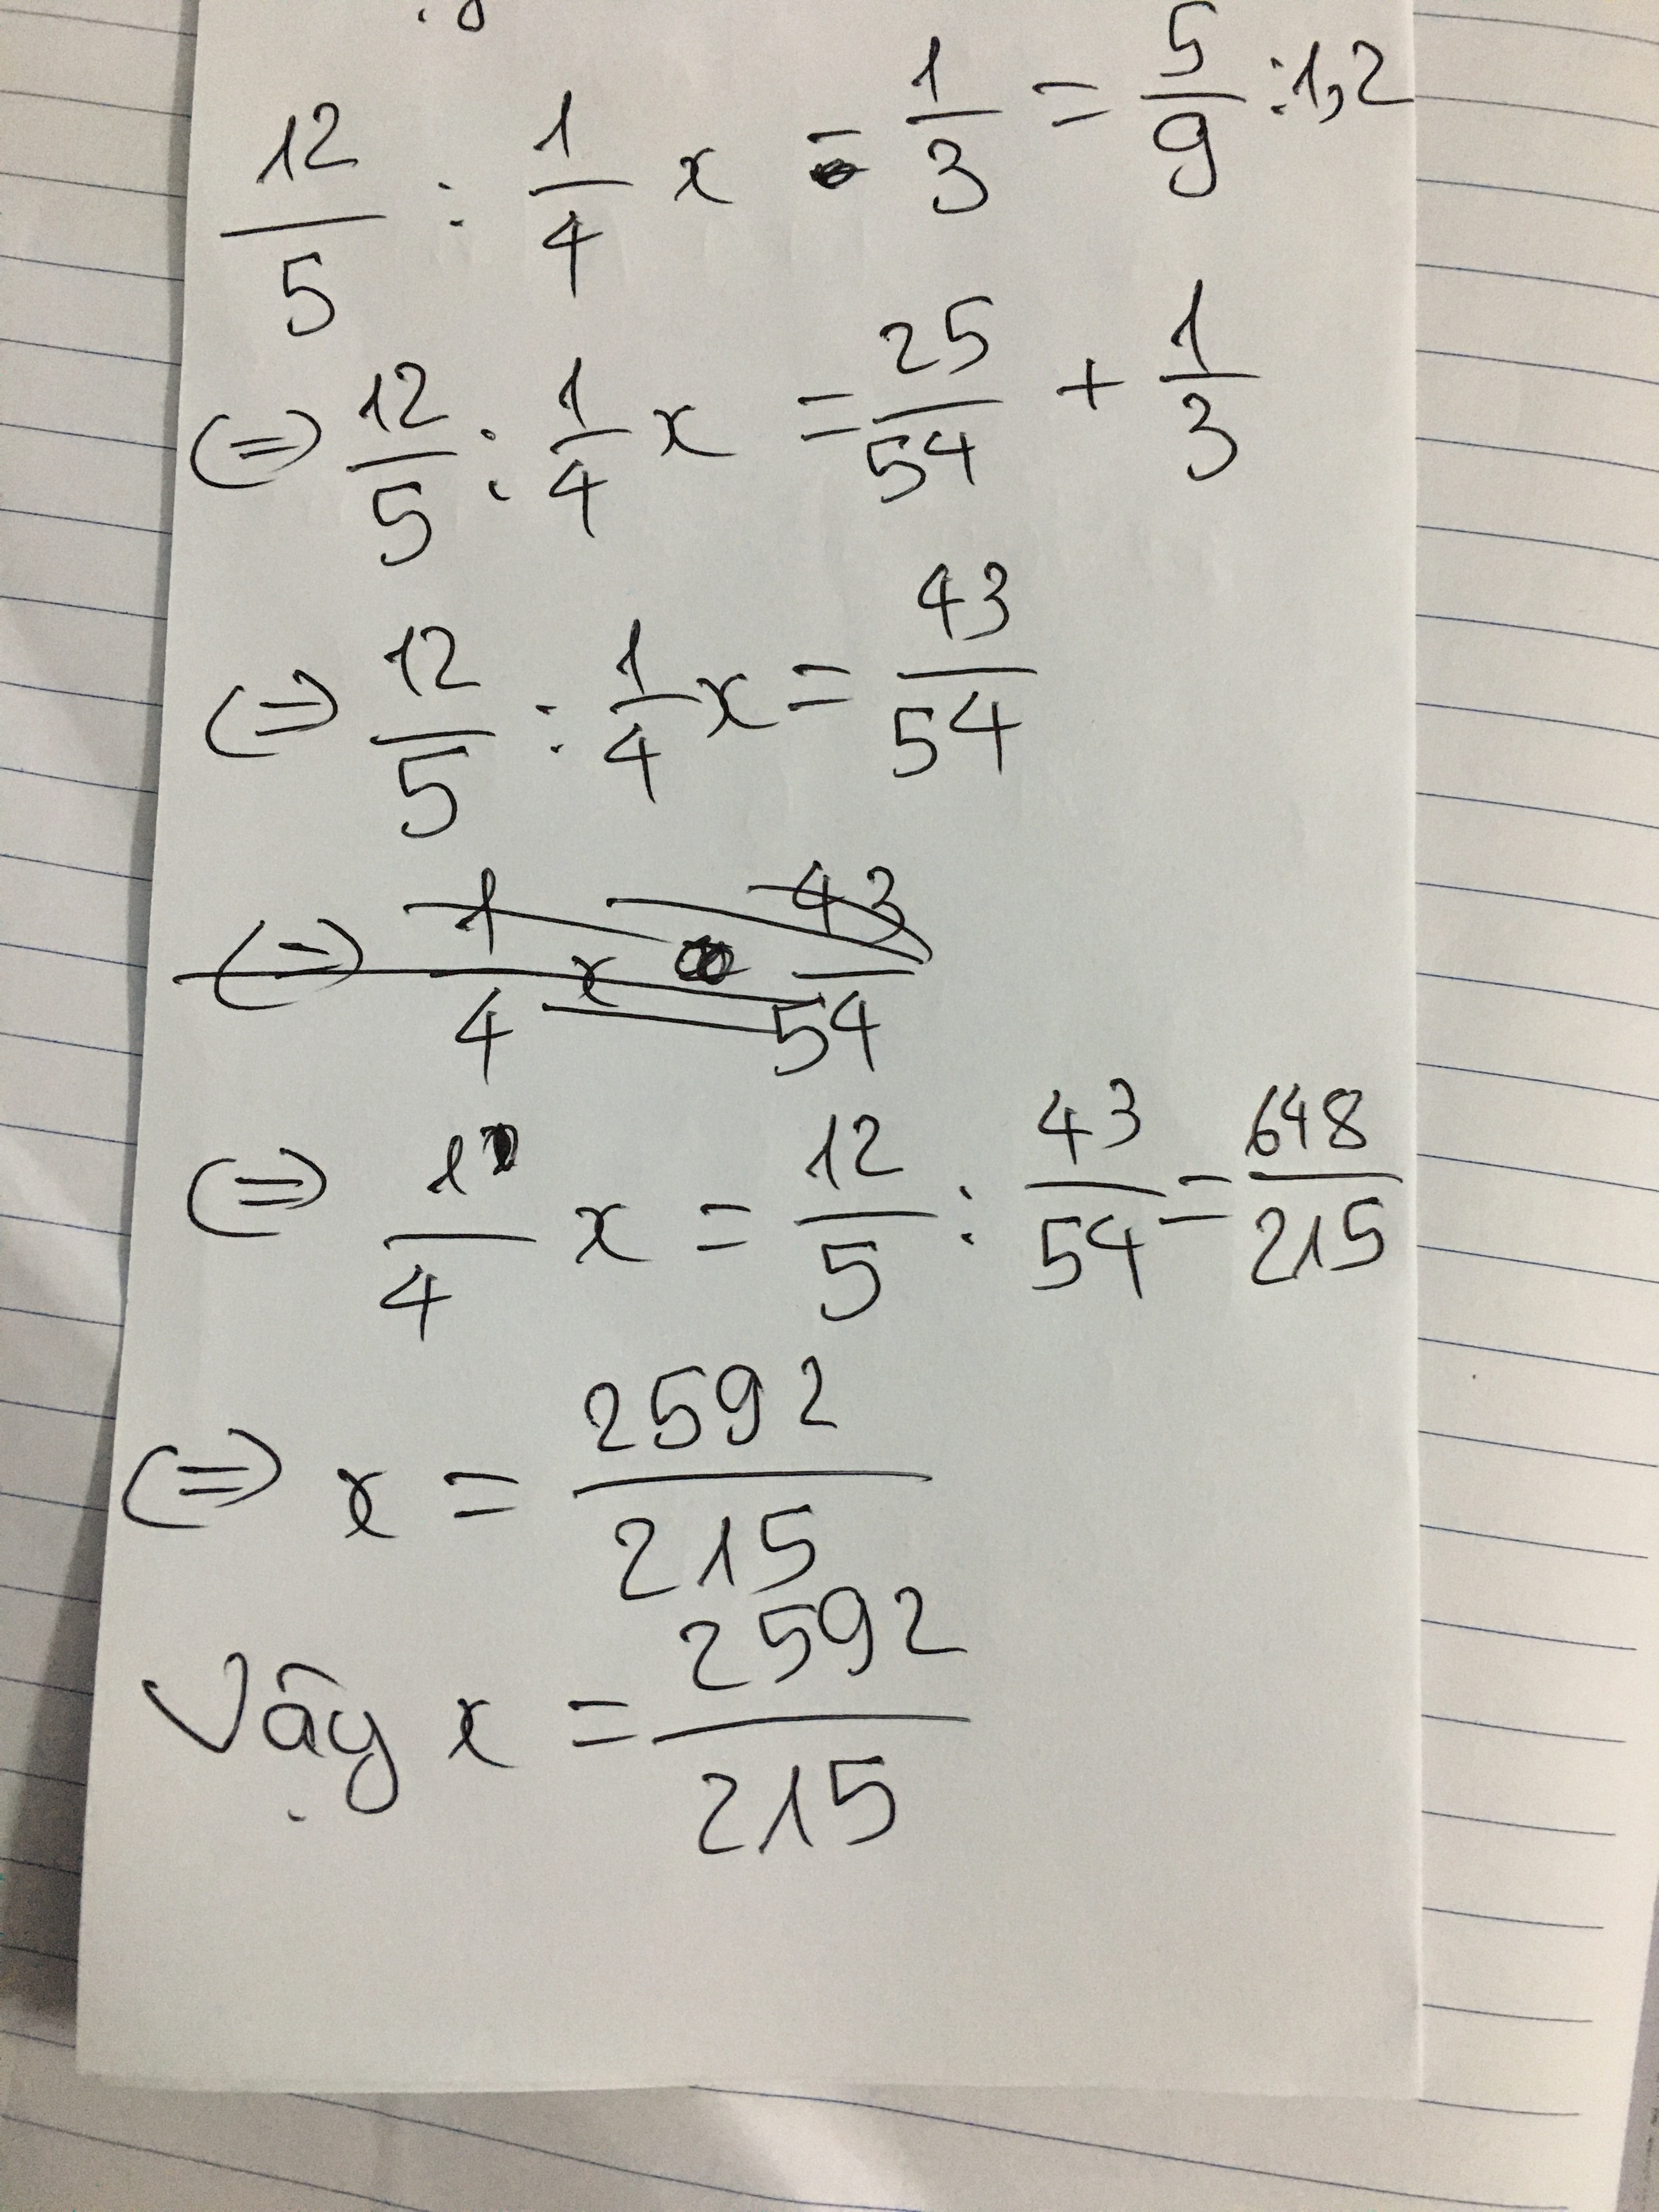 12/5 : 1/4 x - 1/3 = 5/9 : 1,2
(=) 12/5 : 1/4 x = 25/54 + 1/3
(=) 12/5 : 1/4 x = 43/54
(=) 1/4 x 43/54
(=) 1/4 x = 12/5 : 43/54 = 648/215
(=) x = 2592/215
Vậy x = 2592/215